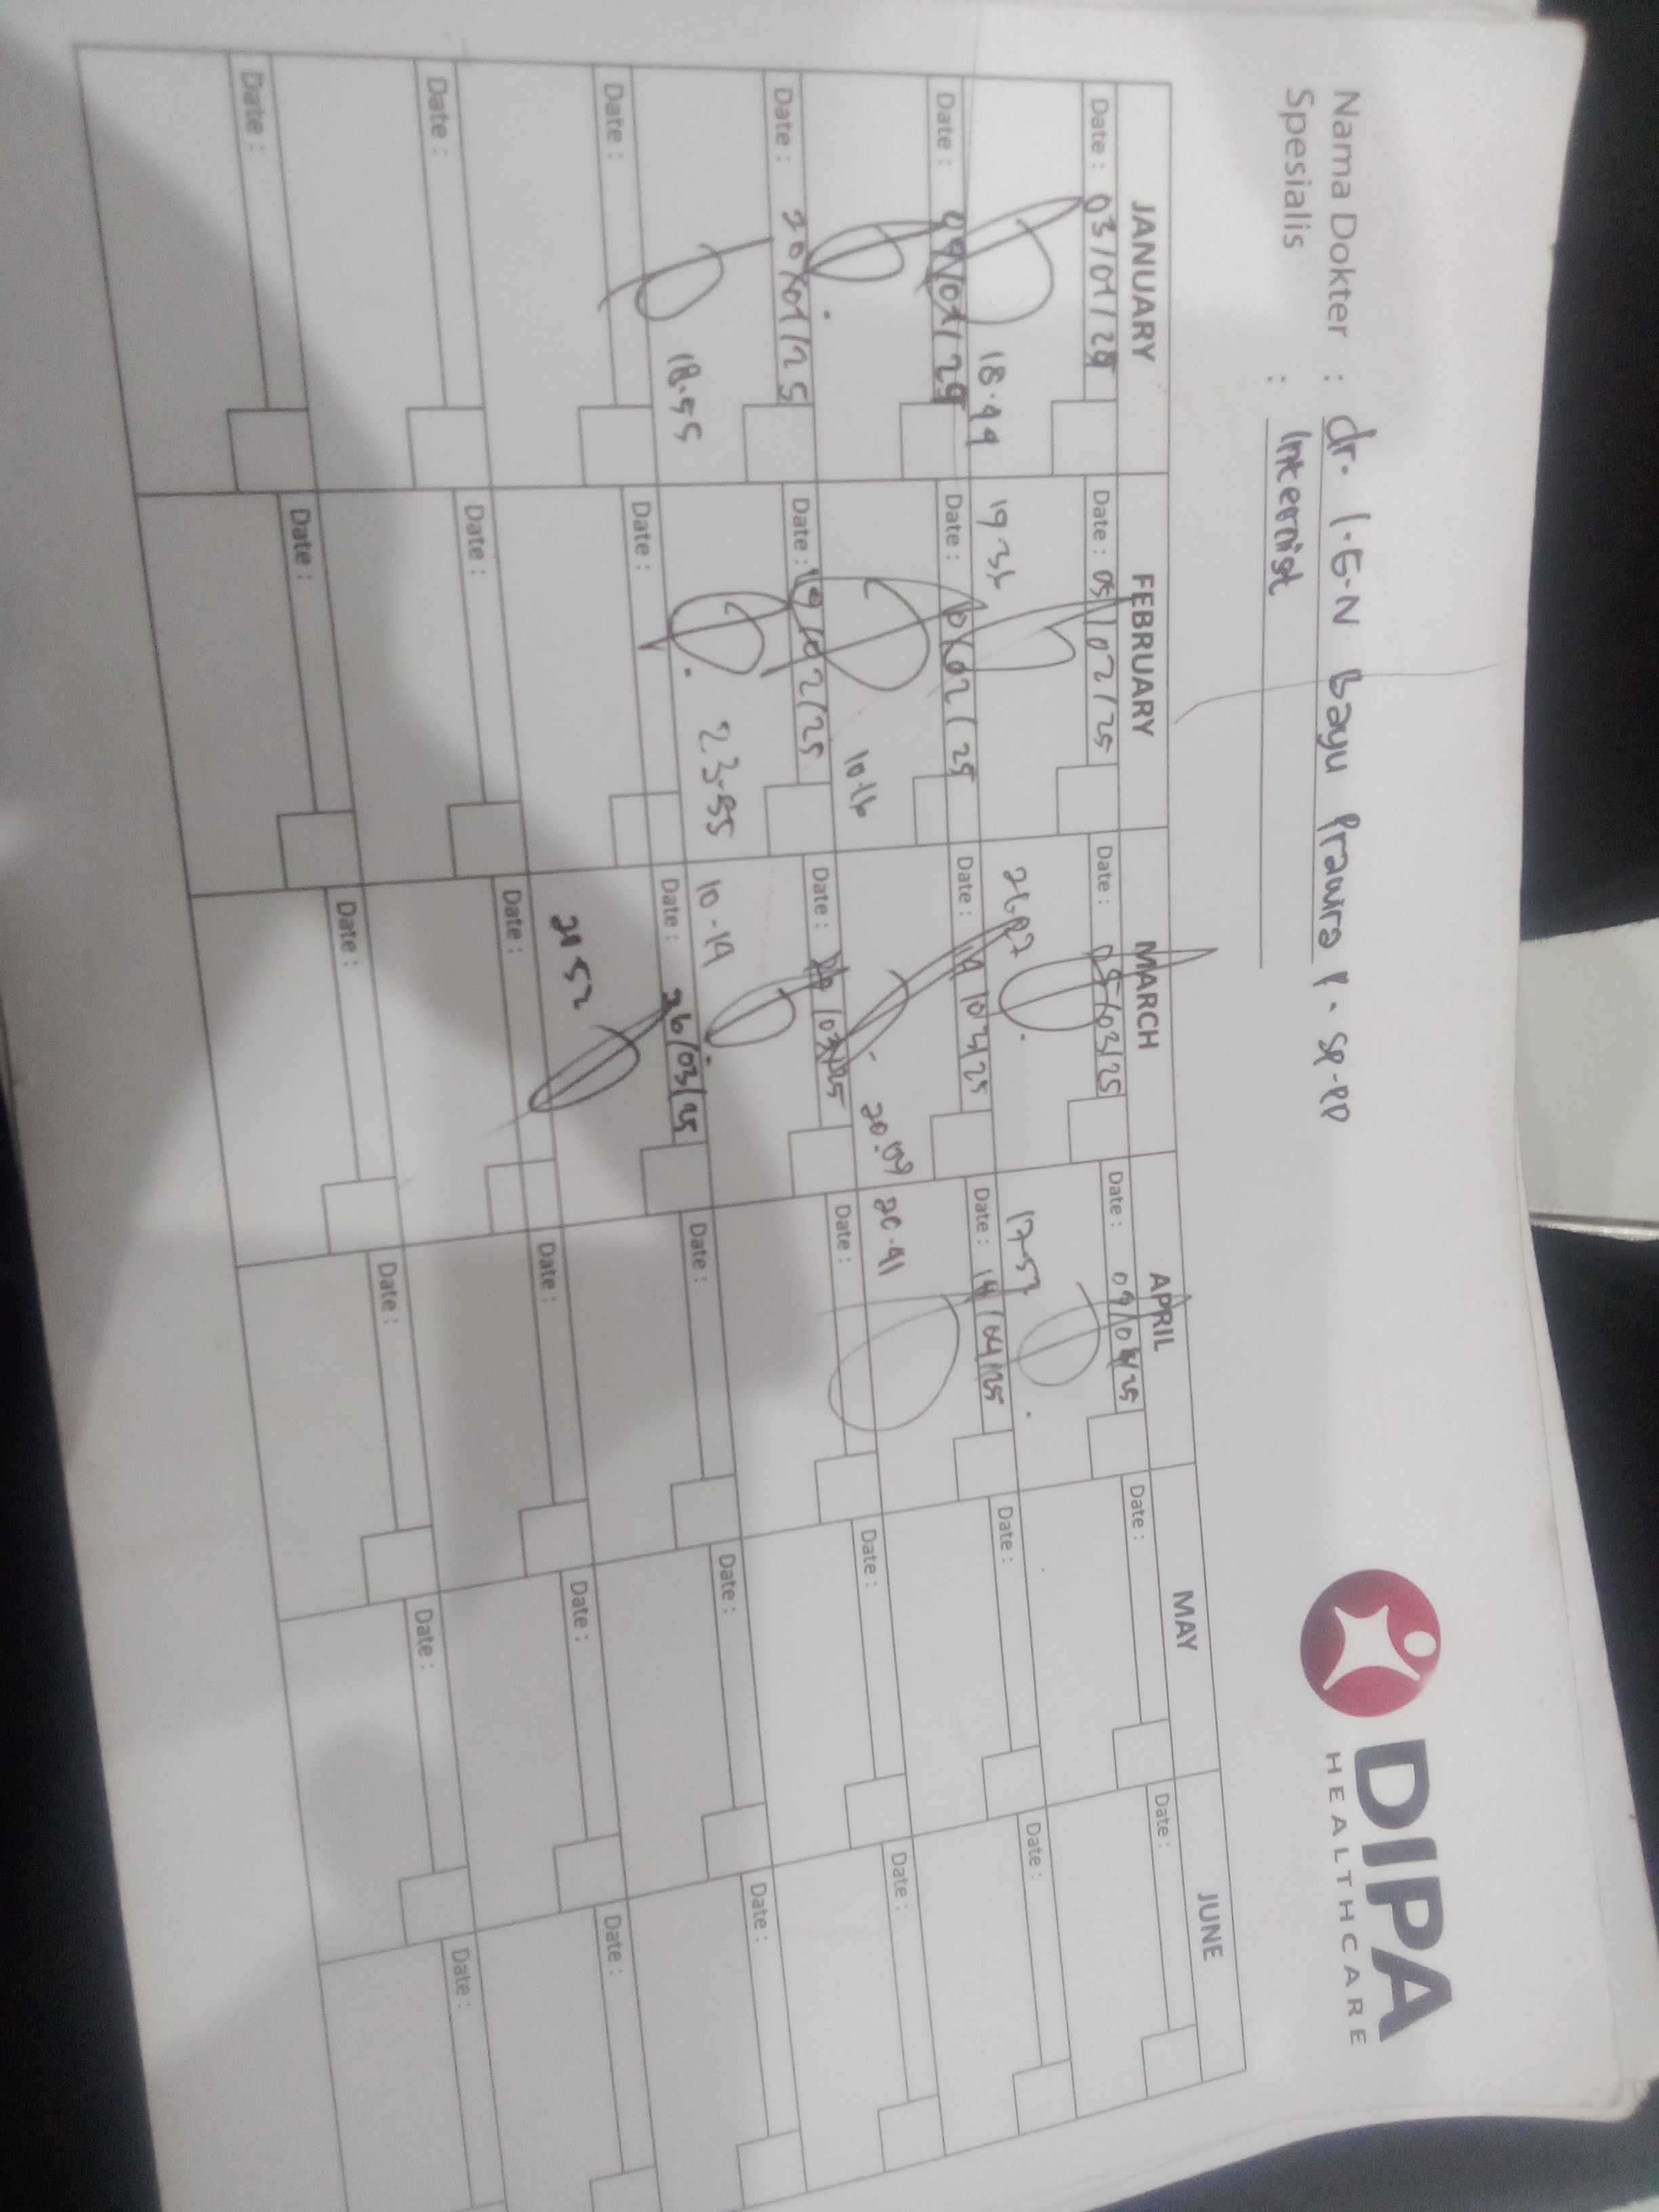 DIPA
HEALTHCARE
Nama Dokter : dr. I.G.N Bayu Prawira P. Sp.PD
Spesialis : Internist
JANUARY FEBRUARY MARCH APRIL MAY JUNE
Date : 03/01/25 Date : 05/02/25 Date : 05/03/25 Date : 09/04/25 Date : Date :
18.44 19 36 17.53
Date : 09/01/25 Date : 10/02/25 Date : 14/03/25 Date : 14/04/25 Date : Date :
10.16 20.09 20.41
Date : 20/01/25 Date : 19/02/25 Date : /03/25 Date : Date : Date :
18.55 23.55 10.19
Date : Date : Date : 26/03/25 Date : Date : Date :
21 52
Date : Date : Date : Date : Date : Date :
Date : Date : Date : Date : Date : Date :